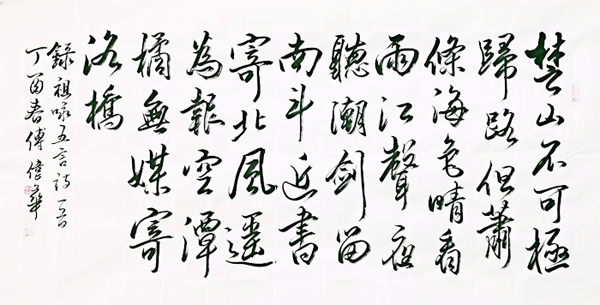 楚山不可極
歸路但蕭
條海色晴看
雨江聲夜
聽潮劍留
南斗近書
寄北風遙
為報空潭
橘無媒寄
洛橋
錄祖咏五言詩一首
丁酉春傅偉華